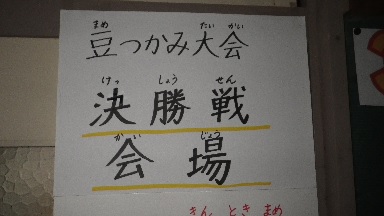 まめ たい かい
豆つかみ大会
けっ しょう せん
決勝戦
かい じょう
会場
きん とき まめ